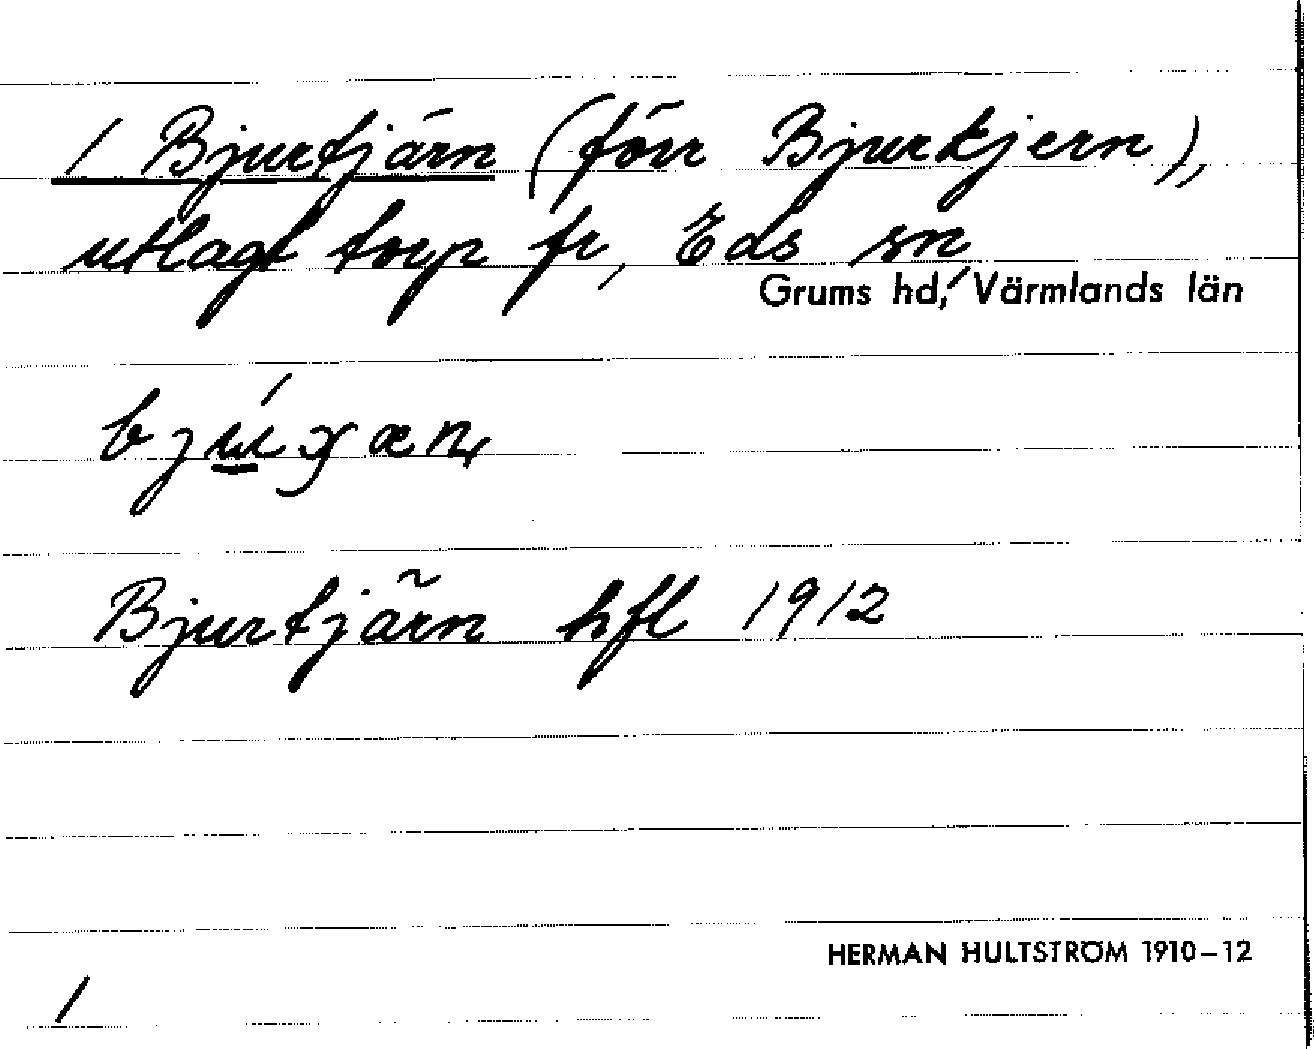 / Bjurtjärn (förr Bjurkjern),
utlagt torp fr, Eds sn
Grums hd, Värmlands län
Bjurtjärn hfl 1912
HERMAN HULTSTRÖM 1910–12
/